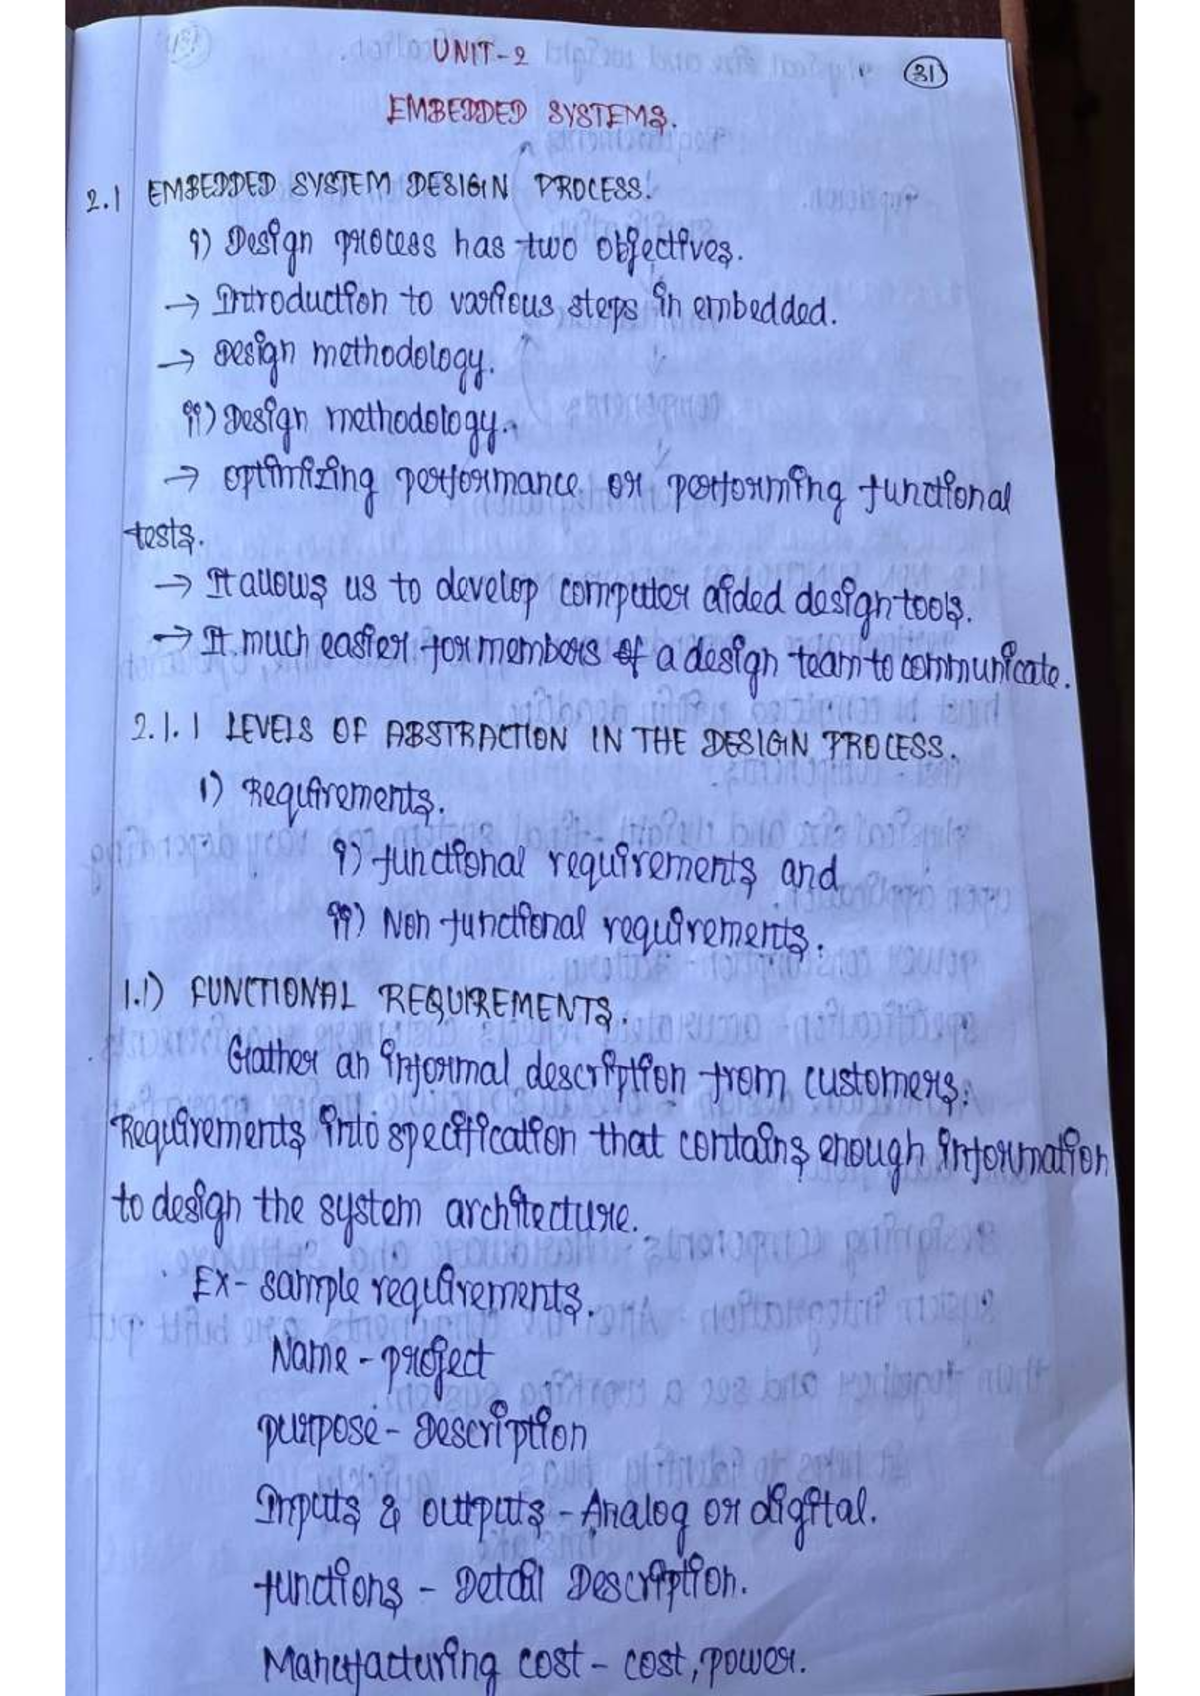 UNIT-2
31
EMBEDDED SYSTEMS.
2.1 EMBEDDED SYSTEM DESIGN PROCESS.
i) Design process has two objectives.
→ Introduction to various steps in embedded.
→ Design methodology.
ii) Design methodology.
→ optimizing performance or performing functional
tests.
→ It allows us to develop computer aided design tools.
→ It much easier for members of a design team to communicate.
2.1.1 LEVELS OF ABSTRACTION IN THE DESIGN PROCESS.
1) Requirements.
i) functional requirements and
ii) Non functional requirements.
1.1) FUNCTIONAL REQUIREMENTS.
Gather an informal description from customers.
Requirements into specification that contains enough information
to design the system architecture.
Ex- sample requirements.
Name - project
purpose - Description
Inputs & outputs - Analog or digital.
functions - Detail Description.
Manufacturing cost - cost, power.